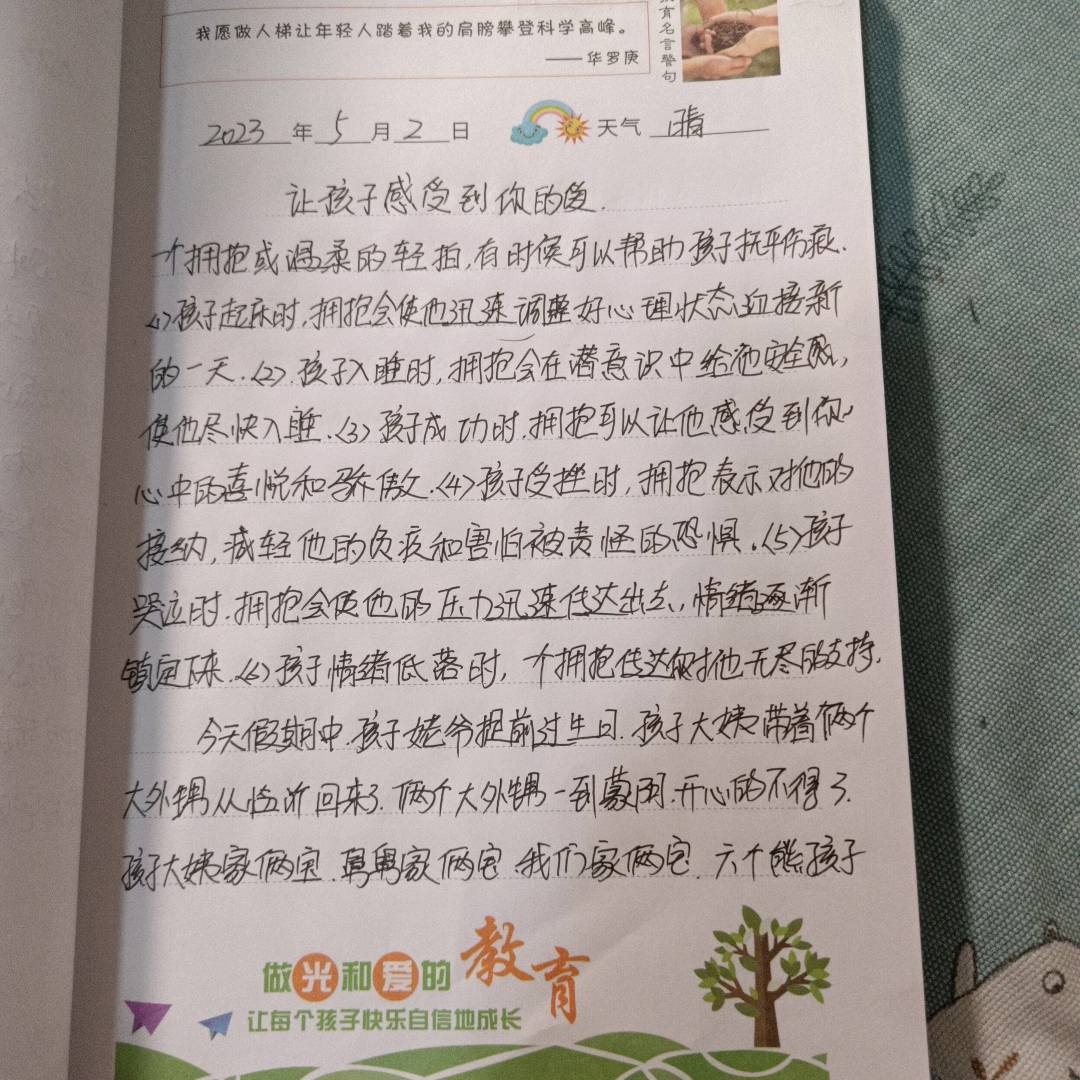 我愿做人梯让年轻人踏着我的肩膀攀登科学高峰。
——华罗庚
育名言警句
2023年5月2日 天气 晴
让孩子感受到你的爱.
一个拥抱或温柔的轻拍,有时候可以帮助孩子抚平伤痕.
<1>孩子起床时,拥抱会使他迅速调整好心理状态迎接新
的一天.<2>.孩子入睡时,拥抱会在潜意识中给他安全感,
使他尽快入睡.<3>孩子成功时.拥抱可以让他感受到你
心中的喜悦和骄傲.<4>孩子受挫时,拥抱表示对他的
接纳,减轻他的负疚和害怕被责怪的恐惧.<5>孩子
哭泣时.拥抱会使他的压力迅速传达出去,情绪逐渐
镇定下来.<6>孩子情绪低落时,一个拥抱传达你对他无尽的支持.
今天假期中.孩子姥爷提前过生日.孩子大姨带着俩个
大外甥从临沂回来了.俩个大外甥一到蒙阴.开心的不得了.
孩子大姨家俩宝.舅舅家俩宝.我们家俩宝.六个熊孩子
做光和爱的教育
让每个孩子快乐自信地成长